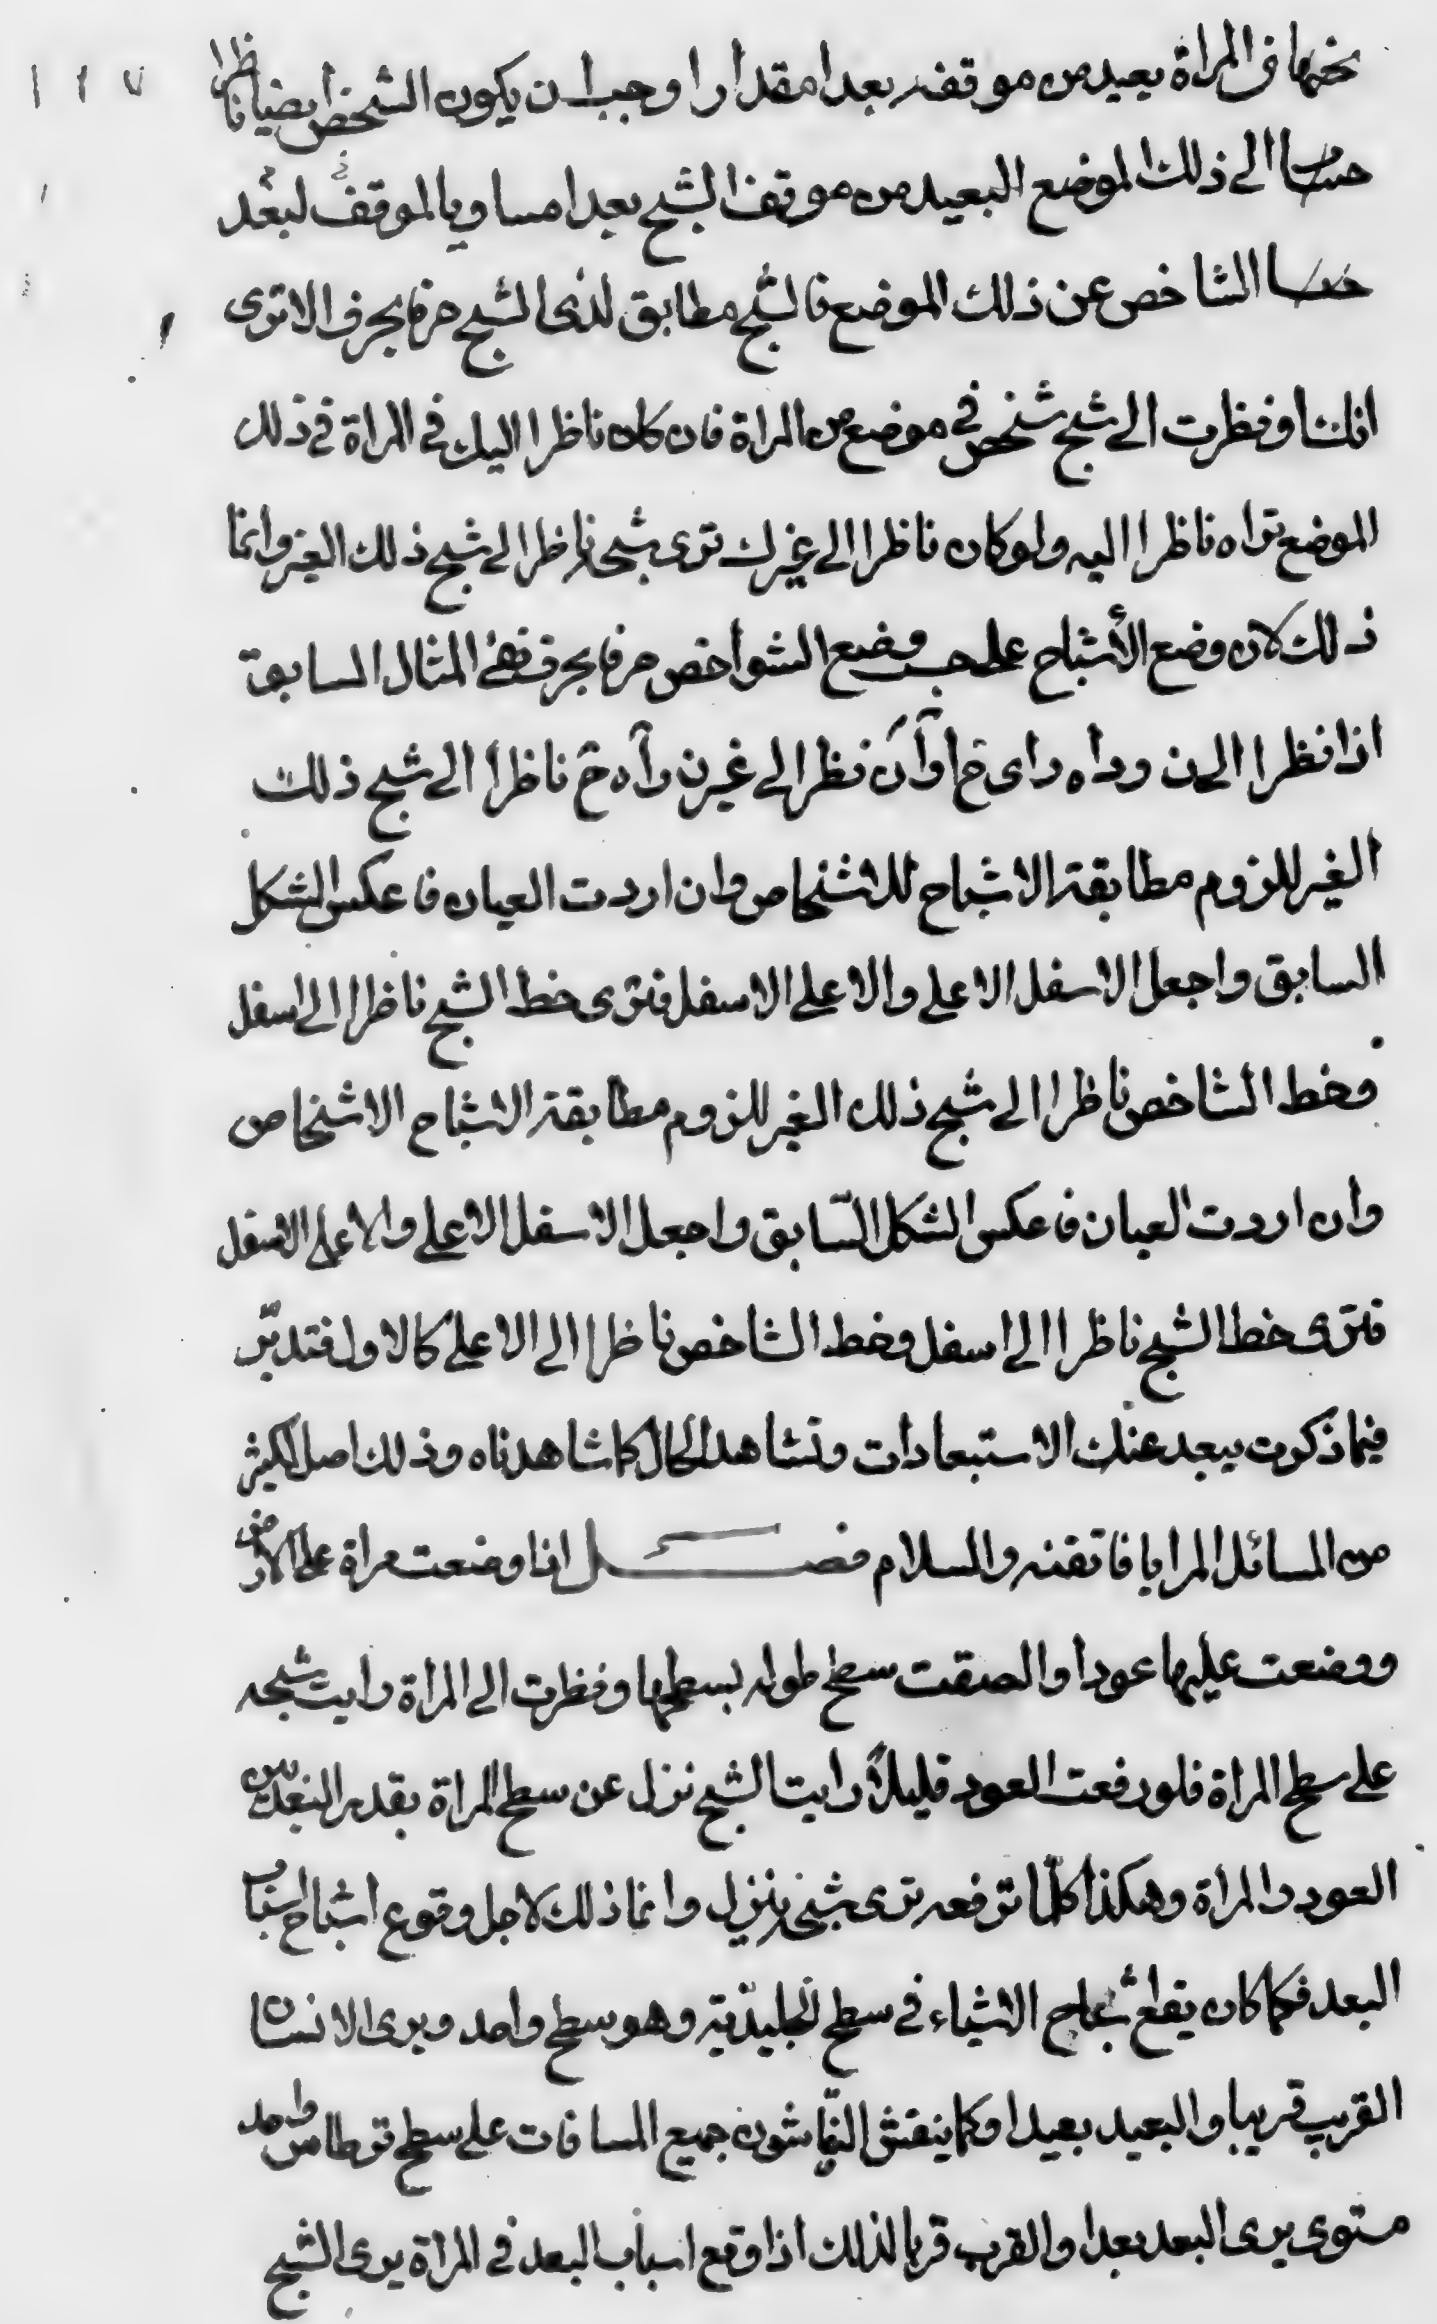 في المراة بعيد من موقفه بعدا مقدارا وجب ان يكون الشخص ايضا ناظرا
الى ذلك الموضع البعيد من موقف الشبح بعدا مساويا لموقف لبعد
الشاخص عن ذلك الموضع فالشبح مطابق لذي الشبح حرفا بحرف الا ترى
انك لو نظرت الى شبح شخص في موضع من المراة فان كان ناظرا اليك في المراة في ذلك
الموضع تراه ناظرا اليه ولو كان ناظرا الى غيرك ترى شبحه ناظرا الى شبح ذلك الغير وانما
ذلك لان وضع الأشباح على حسب وضع الشواخص حرفا بحرف ففي المثال السابق
اذا نظر ا الى ن وراه راى خ ا وآن نظر الى غير ن رآه خ ناظرا الى شبح ذلك
الغير للزوم مطابقة الاشباح للاشخاص وان اردت العيان فاعكس الشكل
السابق واجعل الاسفل الاعلى والاعلى الاسفل فترى خط الشبح ناظرا الى اسفل
وخط الشاخص ناظرا الى شبح ذلك الغير للزوم مطابقة الاشباح الاشخاص
وان اردت العيان فاعكس الشكل السّابق واجعل الاسفل الاعلى والاعلى الاسفل
فترى خط الشبح ناظرا الى اسفل وخط الشاخص ناظرا الى الاعلى كالاول فتدبّر
فيما ذكرت يبعد عنك الاستبعادات وتشاهد الحال كما شاهدناه وذلك اصل لكثير
من المسائل المرايا فاتقنه والسلام فصل اذا وضعت مراة على الارض
ووضعت عليها عودا والصقت سطح طوله بسطحها ونظرت الى المراة رايت شبحه
على سطح المراة فلو رفعت العود قليلاً رايت الشبح نزل عن سطح المراة بقدر البعد بين
العود والمراة وهكذا كلّما ترفعه ترى شبحه ينزل وانما ذلك لاجل وقوع اشباح اسباب
البعد فكما كان يقع اشباح الاشياء في سطح الجليديّة وهو سطح واحد ويرى الانسان
القريب قريبا والبعيد بعيدا وكما ينقش النقّاشون جميع المسافات على سطح قرطاس واحد
مستوى يرى البعد بعدا والقرب قربا لذلك اذا وقع اسباب البعد في المراة يرى الشبح